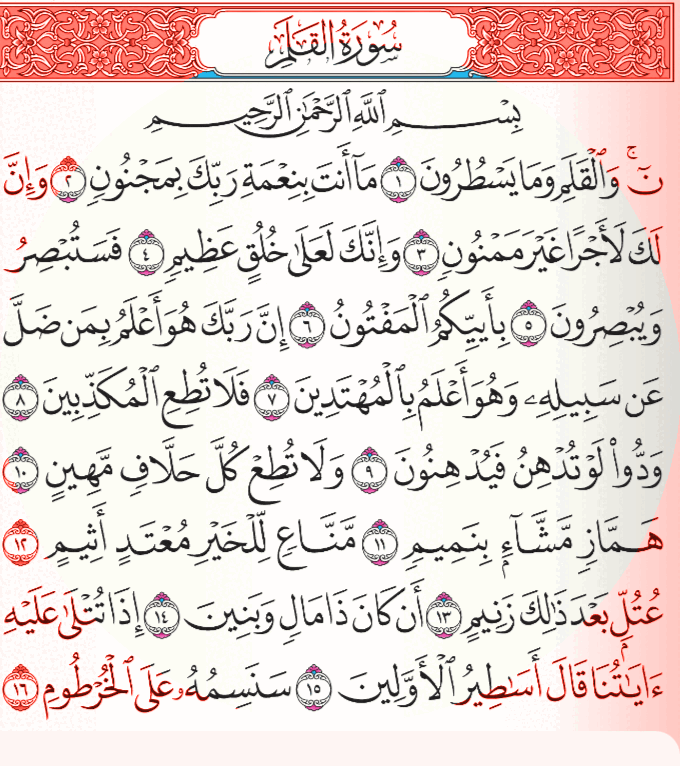 سُورَةُ القَلَمِ
بِسْمِ ٱللَّهِ ٱلرَّحْمَٰنِ ٱلرَّحِيمِ
نٓۚ وَٱلْقَلَمِ وَمَا يَسْطُرُونَ ١ مَآ أَنتَ بِنِعْمَةِ رَبِّكَ بِمَجْنُونٍ ٢ وَإِنَّ
لَكَ لَأَجْرًا غَيْرَ مَمْنُونٍ ٣ وَإِنَّكَ لَعَلَىٰ خُلُقٍ عَظِيمٍ ٤ فَسَتُبْصِرُ
وَيُبْصِرُونَ ٥ بِأَييِّكُمُ ٱلْمَفْتُونُ ٦ إِنَّ رَبَّكَ هُوَ أَعْلَمُ بِمَن ضَلَّ
عَن سَبِيلِهِۦ وَهُوَ أَعْلَمُ بِٱلْمُهْتَدِينَ ٧ فَلَا تُطِعِ ٱلْمُكَذِّبِينَ ٨
وَدُّوا۟ لَوْ تُدْهِنُ فَيُدْهِنُونَ ٩ وَلَا تُطِعْ كُلَّ حَلَّافٍ مَّهِينٍ ١٠
هَمَّازٍ مَّشَّآءٍۭ بِنَمِيمٍ ١١ مَّنَّاعٍ لِّلْخَيْرِ مُعْتَدٍ أَثِيمٍ ١٢
عُتُلٍّۭ بَعْدَ ذَٰلِكَ زَنِيمٍ ١٣ أَن كَانَ ذَا مَالٍ وَبَنِينَ ١٤ إِذَا تُتْلَىٰ عَلَيْهِ
ءَايَٰتُنَا قَالَ أَسَٰطِيرُ ٱلْأَوَّلِينَ ١٥ سَنَسِمُهُۥ عَلَى ٱلْخُرْطُومِ ١٦